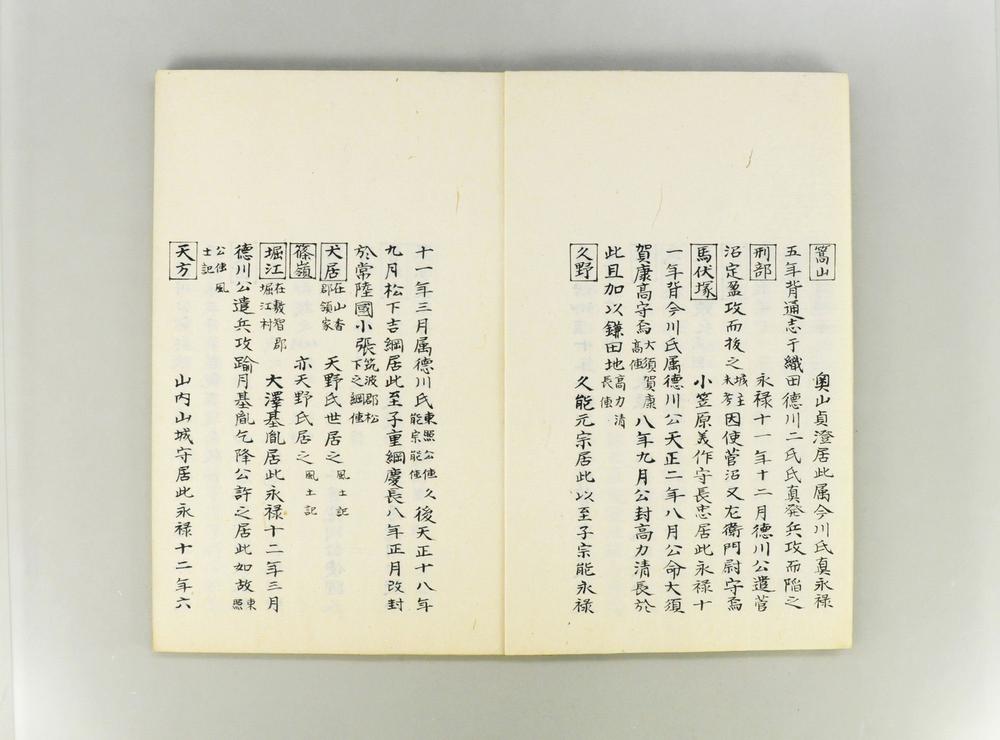 嵩山 奥山貞澄居此属今川氏真永禄
五年背通志于織田徳川二氏氏真発兵攻而陥之
刑部 永禄十一年十二月徳川公遣菅
沼定盈攻而抜之城主未考因使菅沼又左衛門尉守焉
馬伏塚 小笠原美作守長忠居此永禄十
一年背今川氏属徳川公天正二年八月公命大須
賀康高守焉大須賀康高傳八年九月公封高力清長於
此且加以鎌田地高力清長傳
久野 久能元宗居此以至子宗能永禄
十一年三月属徳川氏東照公傳久能宗能傳後天正十八年
九月松下吉綱居此至子重綱慶長八年正月改封
於常陸國小張筑波郡松下之綱傳
犬居在山香郡領家 天野氏世居之風土記
篠嶺 亦天野氏居之風土記
堀江在敷智郡堀江村 大澤基胤居此永禄十二年三月
徳川公遣兵攻踰月基胤乞降公許之居此如故東照
公傳風土記
天方 山内山城守居此永禄十二年六